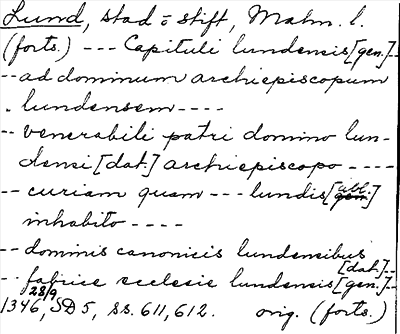 Lund, stad o stift, Malm. l.
(forts.) --- Capituli lundensis [gen.] --
-- ad dominum archiepiscopum
. lundensem ----
-- venerabili patri domino lun-
densi [dat.] archiepiscopo ----
-- curiam quam --- lundis [abl.]
inhabito ----
-- dominis canonicis lundensibus
[dat.] --
-- fabrice ecclesie lundensis [gen.] --
28/9
1346, SD 5, ss. 611, 612. orig. (forts.)